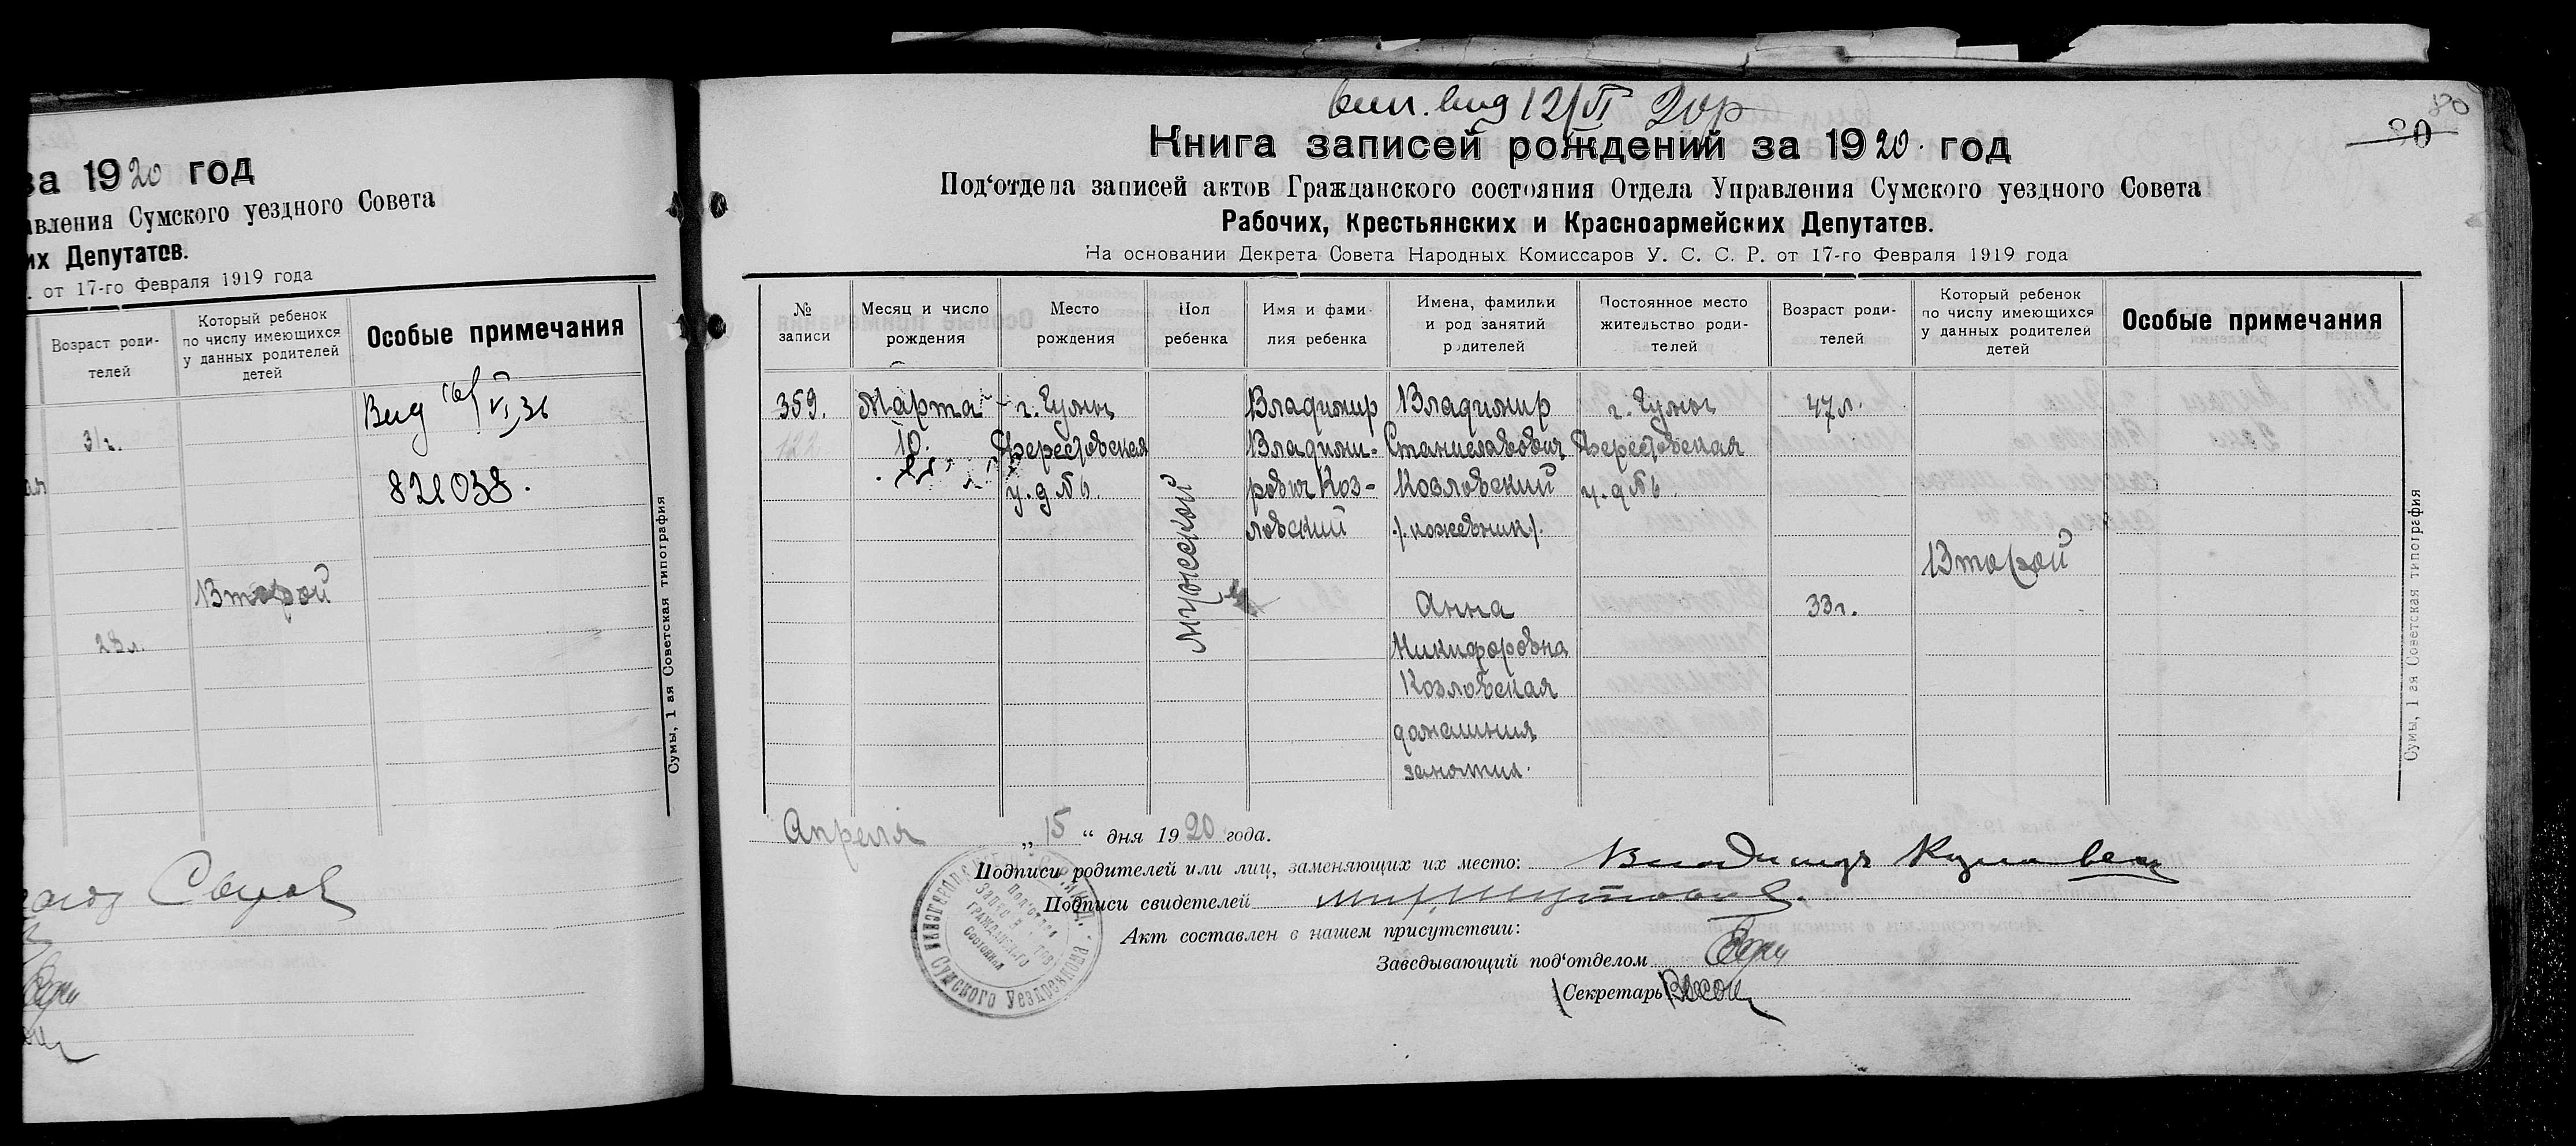 за 1920 год
авления Сумского уездного Совета
их Депутатов.
. от 17-го Февраля 1919 года
Возраст роди-
телей
Который ребенок
по числу имеющихся
у данных родителей
детей
Особые примечания
31г.
Вид VI, 36
821038.
Второй
28л.
Сумы, 1 ая Советская типография
вид 12/VI
80
80
Книга записей рождений за 1920. год
Под‘отдела записей актов Гражданского состояния Отдела Управления Сумского уездного Совета
Рабочих, Крестьянских и Красноармейских Депутатов.
На основании Декрета Совета Народных Комиссаров У. С. С. Р. от 17-го Февраля 1919 года
№
записи
Месяц и число
рождения
Место
рождения
Пол
ребенка
Имя и фами-
лия ребенка
Имена, фамилии
и род занятий
родителей
Постоянное место
жительство роди-
телей
Возраст роди-
телей
Который ребенок
по числу имеющихся
у данных родителей
детей
Особые примечания
359.
122
Марта
10.
г. Сумы
у. д № 6.
Мужской
Владимир
Владими-
рович Коз-
ловский
Владимир
Станиславович
Козловский
/. кожевник/.
Анна
Никифоровна
Козловская
домашния
занятия.
г. Сумы
у. д № 6.
47л.
33г.
Второй
Сумы, 1 ая Советская типография
Апреля „ 15 “ дня 1920 года.
Подписи родителей или лиц, заменяющих их место:
Подписи свидетелей
Акт составлен в нашем присутствии:
Заведывающий под‘отделом
Секретарь
Под‘отдел
Записей
Гражданского
Состояния
Сумского Уездревкома